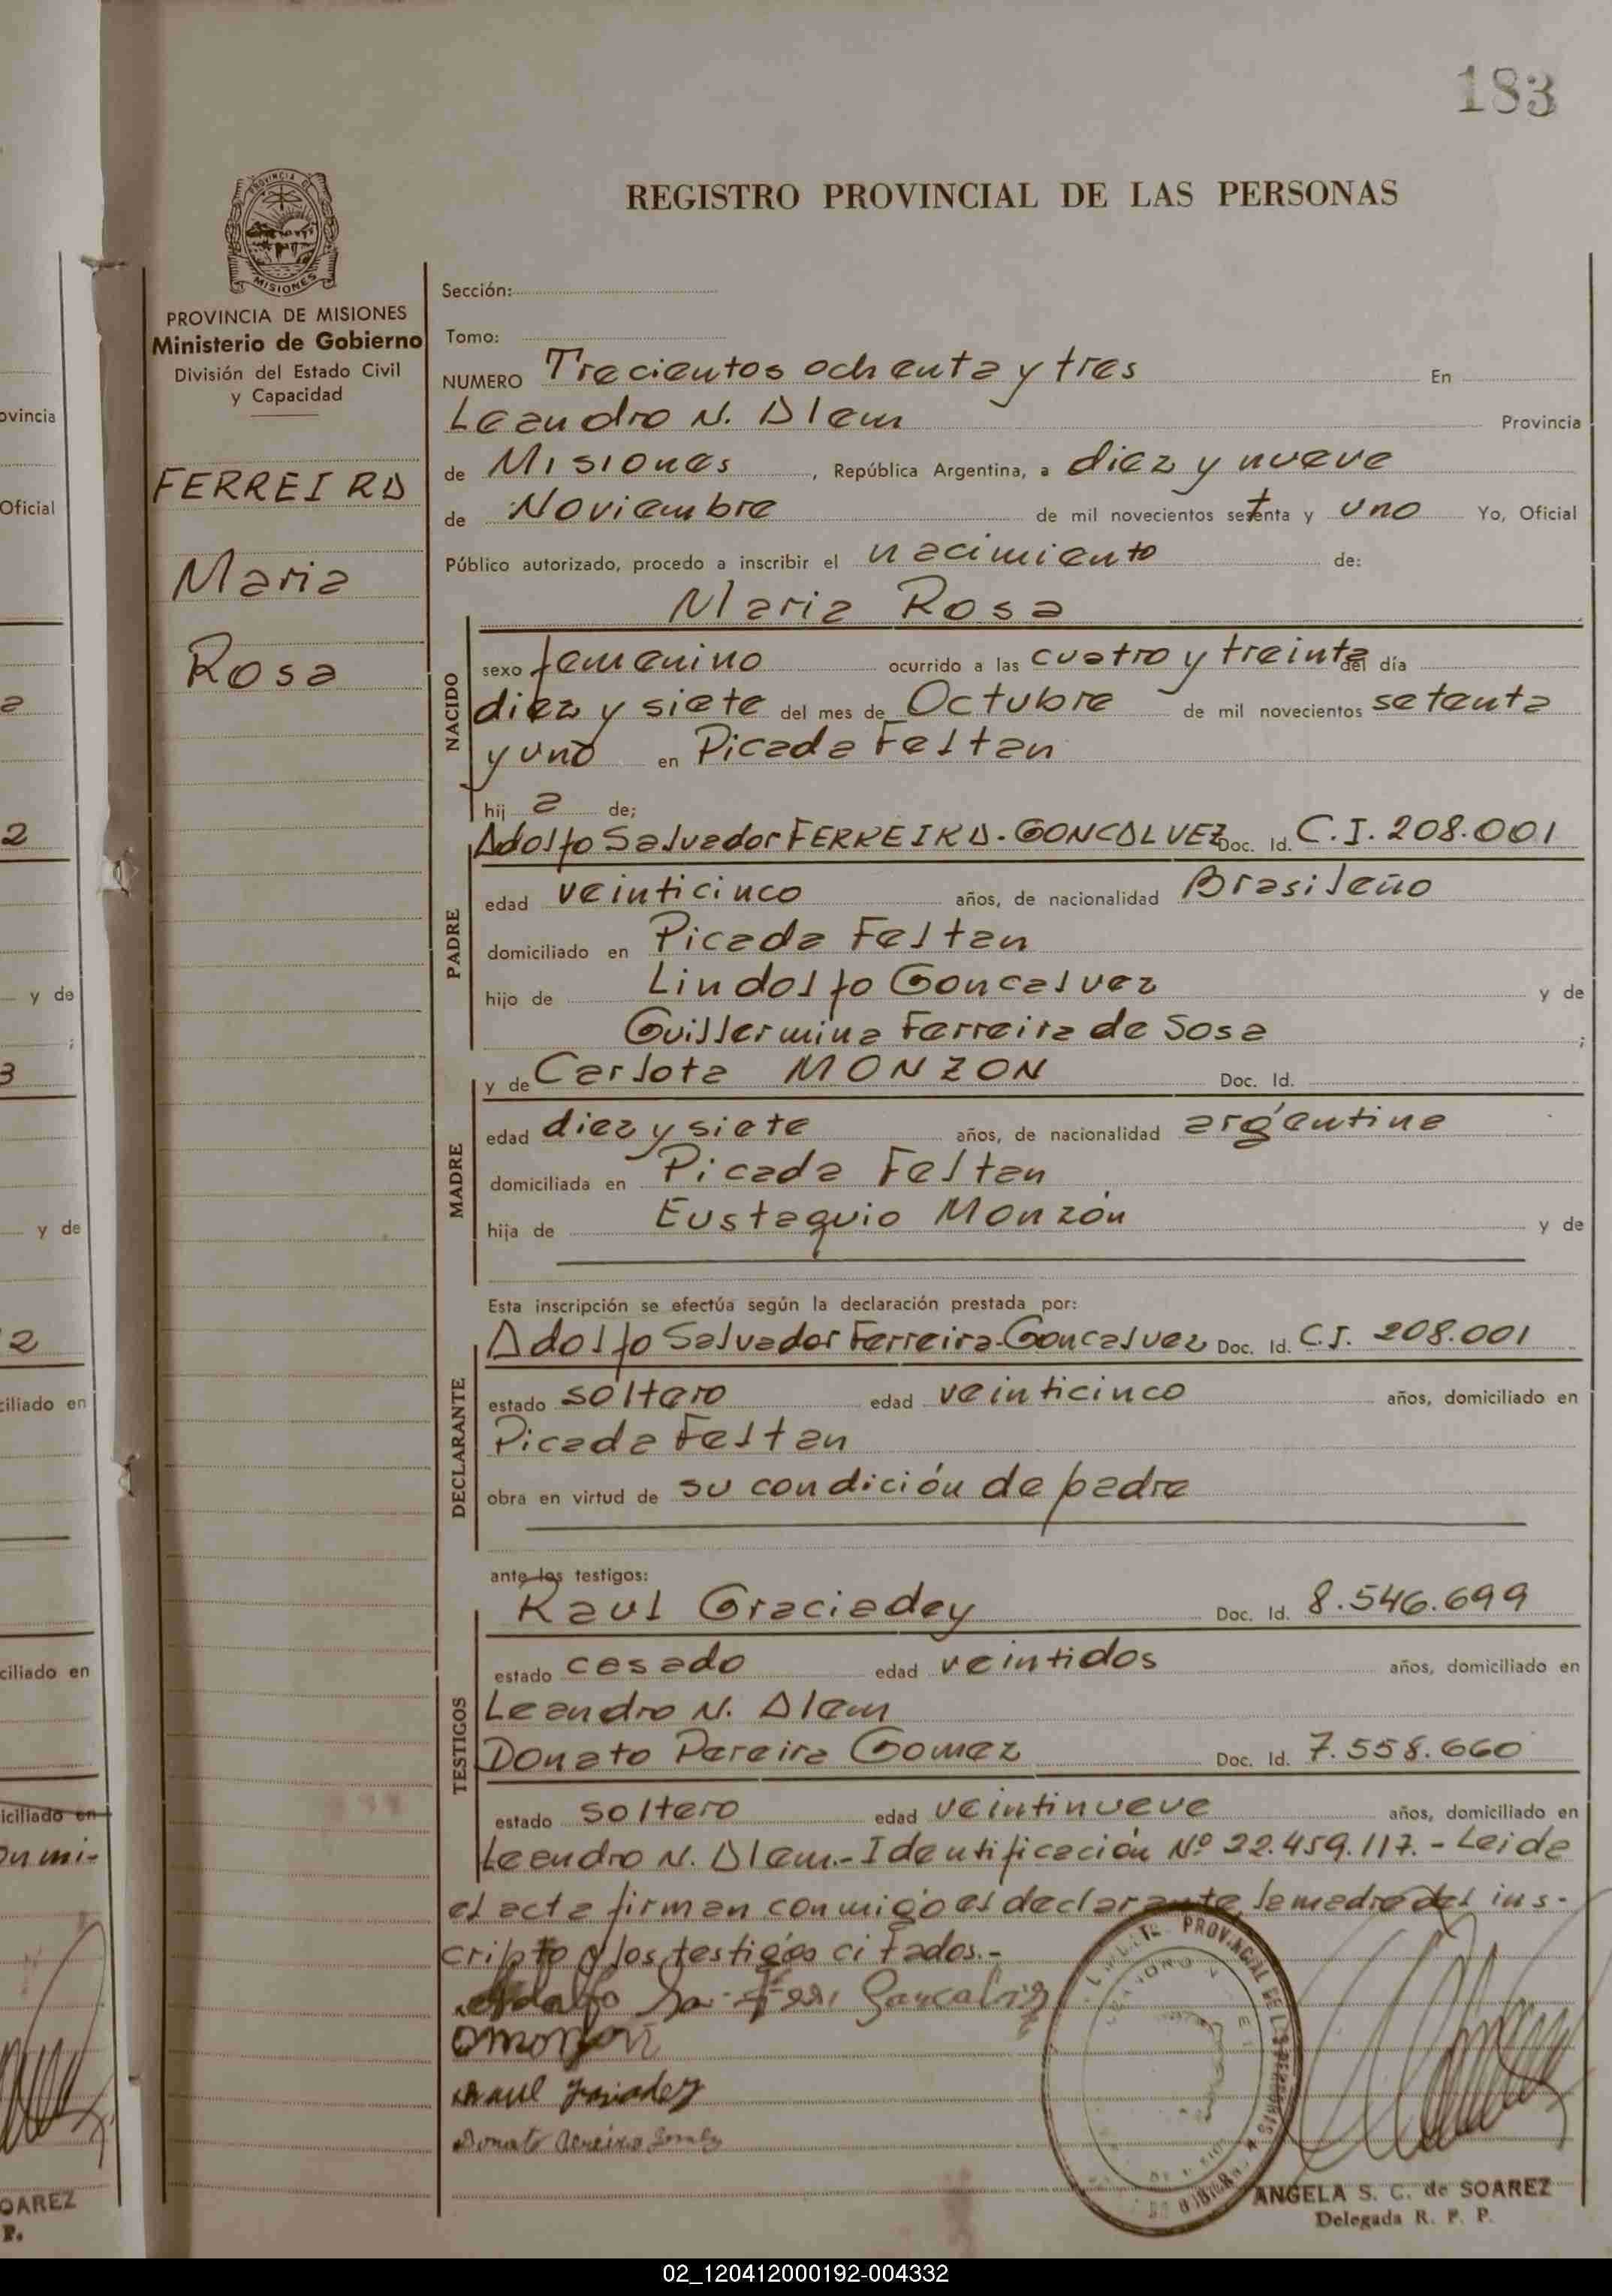 183
REGISTRO PROVINCIAL DE LAS PERSONAS
PROVINCIA DE MISIONES
PROVINCIA DE MISIONES
Ministerio de Gobierno
División del Estado Civil
y Capacidad
FERREIRA
Maria
Rosa
Sección:
Tomo:
NUMERO Trecientos ochenta y tres En
Leandro N. Alem Provincia
de Misiones, República Argentina, a diez y nueve
de Noviembre de mil novecientos setenta y uno Yo, Oficial
Público autorizado, procedo a inscribir el nacimiento de:
Maria Rosa
NACIDO
sexo femenino ocurrido a las cuatro y treinta del día
diez y siete del mes de Octubre de mil novecientos setenta
y uno en Picada Feltan
hij a de;
PADRE
Adolfo Salvador FERREIRA-GONCALVEZ Doc. Id. C.I. 208.001
edad veinticinco años, de nacionalidad Brasileño
domiciliado en Picada Feltan
hijo de Lindolfo Goncalvez y de
Guillermina Ferreira de Sosa ;
MADRE
y de Carlota MONZON Doc. Id.
edad diez y siete años, de nacionalidad argentina
domiciliada en Picada Feltan
hija de Eustaquio Monzón y de
Esta inscripción se efectúa según la declaración prestada por:
DECLARANTE
Adolfo Salvador Ferreira-Goncalvez Doc. Id. C.I. 208.001
estado soltero edad veinticinco años, domiciliado en
Picada Feltan
obra en virtud de su condición de padre
ante los testigos:
TESTIGOS
Raul Graciadey Doc. Id. 8.546.699
estado casado edad veintidos años, domiciliado en
Leandro N. Alem
Donato Pereira Gomez Doc. Id. 7.558.660
estado soltero edad veintinueve años, domiciliado en
Leandro N. Alem.- Identificación Nº 22.459.117.- Leida
el acta firman conmigo el declarante, la madre del ins-
cripto y los testigos citados.-
Goncalvez
Raul
Donato Pereira Gomez
PROVINCIAL DE LAS PERSONAS
ANGELA S. C. de SOAREZ
Delegada R. P. P.
ovincia
Oficial
a
2
y de
;
3
y de
2
ciliado en
ciliado en
iciliado en
OAREZ
P.
02_120412000192-004332